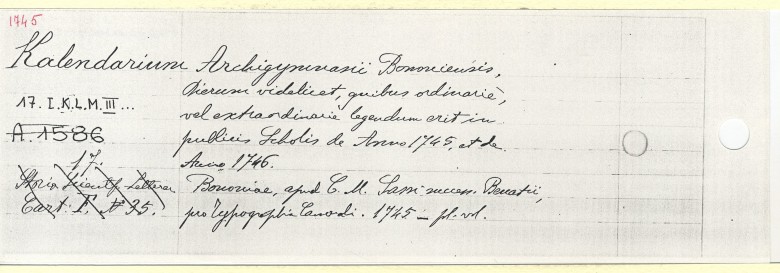 1745
Kalendarium Archigymnasii Bononiensis,
Dierum videlicet, quibus ordinarie,
vel extraordinarie legendum erit in
publicis Scholis de Anno 1745, et de
Anno 1746.
Bononiae, apud C. M. Sassi succes. Benatii,
pro Typographia Camerali. 1745 – fol. vol.
17. I.K.L.M. III ...
A. 1586
17.
Storia Scientif. Letterar.
Cart. F. N° 35.